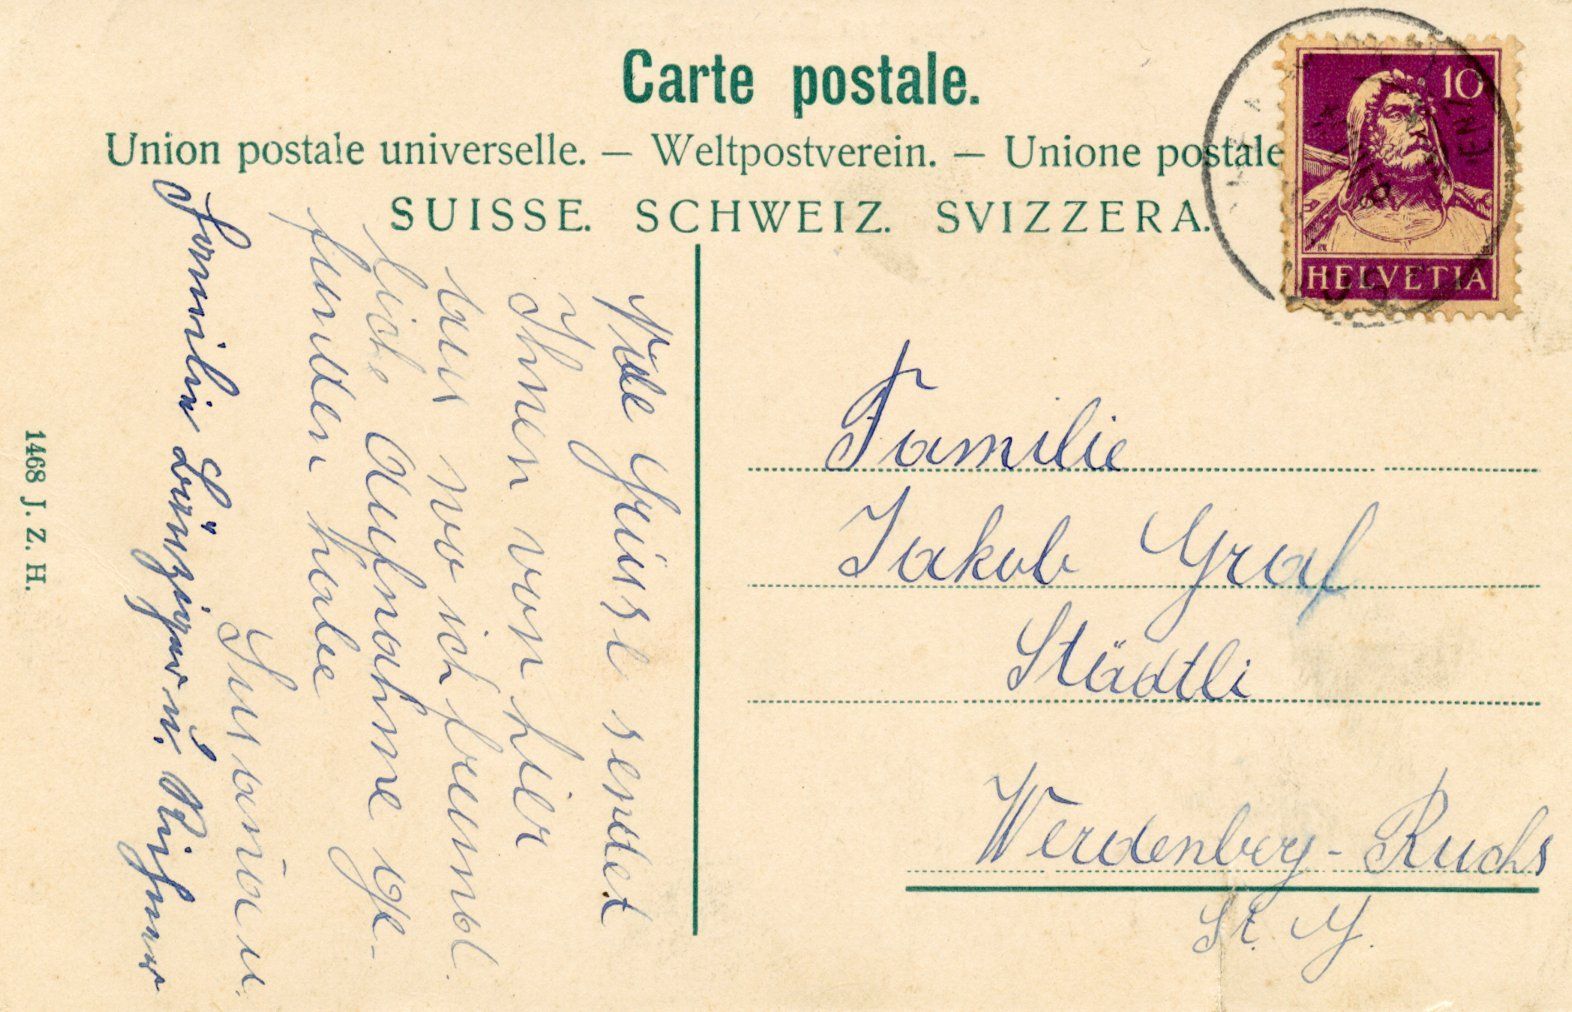 Carte postale.
Union postale universelle. — Weltpostverein. — Unione postale
SUISSE. SCHWEIZ. SVIZZERA.
10
HELVETIA
Familie
Jakob Graf
Städtli
Werdenberg-Buchs
St. G.
Viele Grüsse sendet
Ihnen von hier
aus wo ich freund
liche Aufnahme ge-
funden habe
Susanna u.
Familie
1468 J. Z. H.